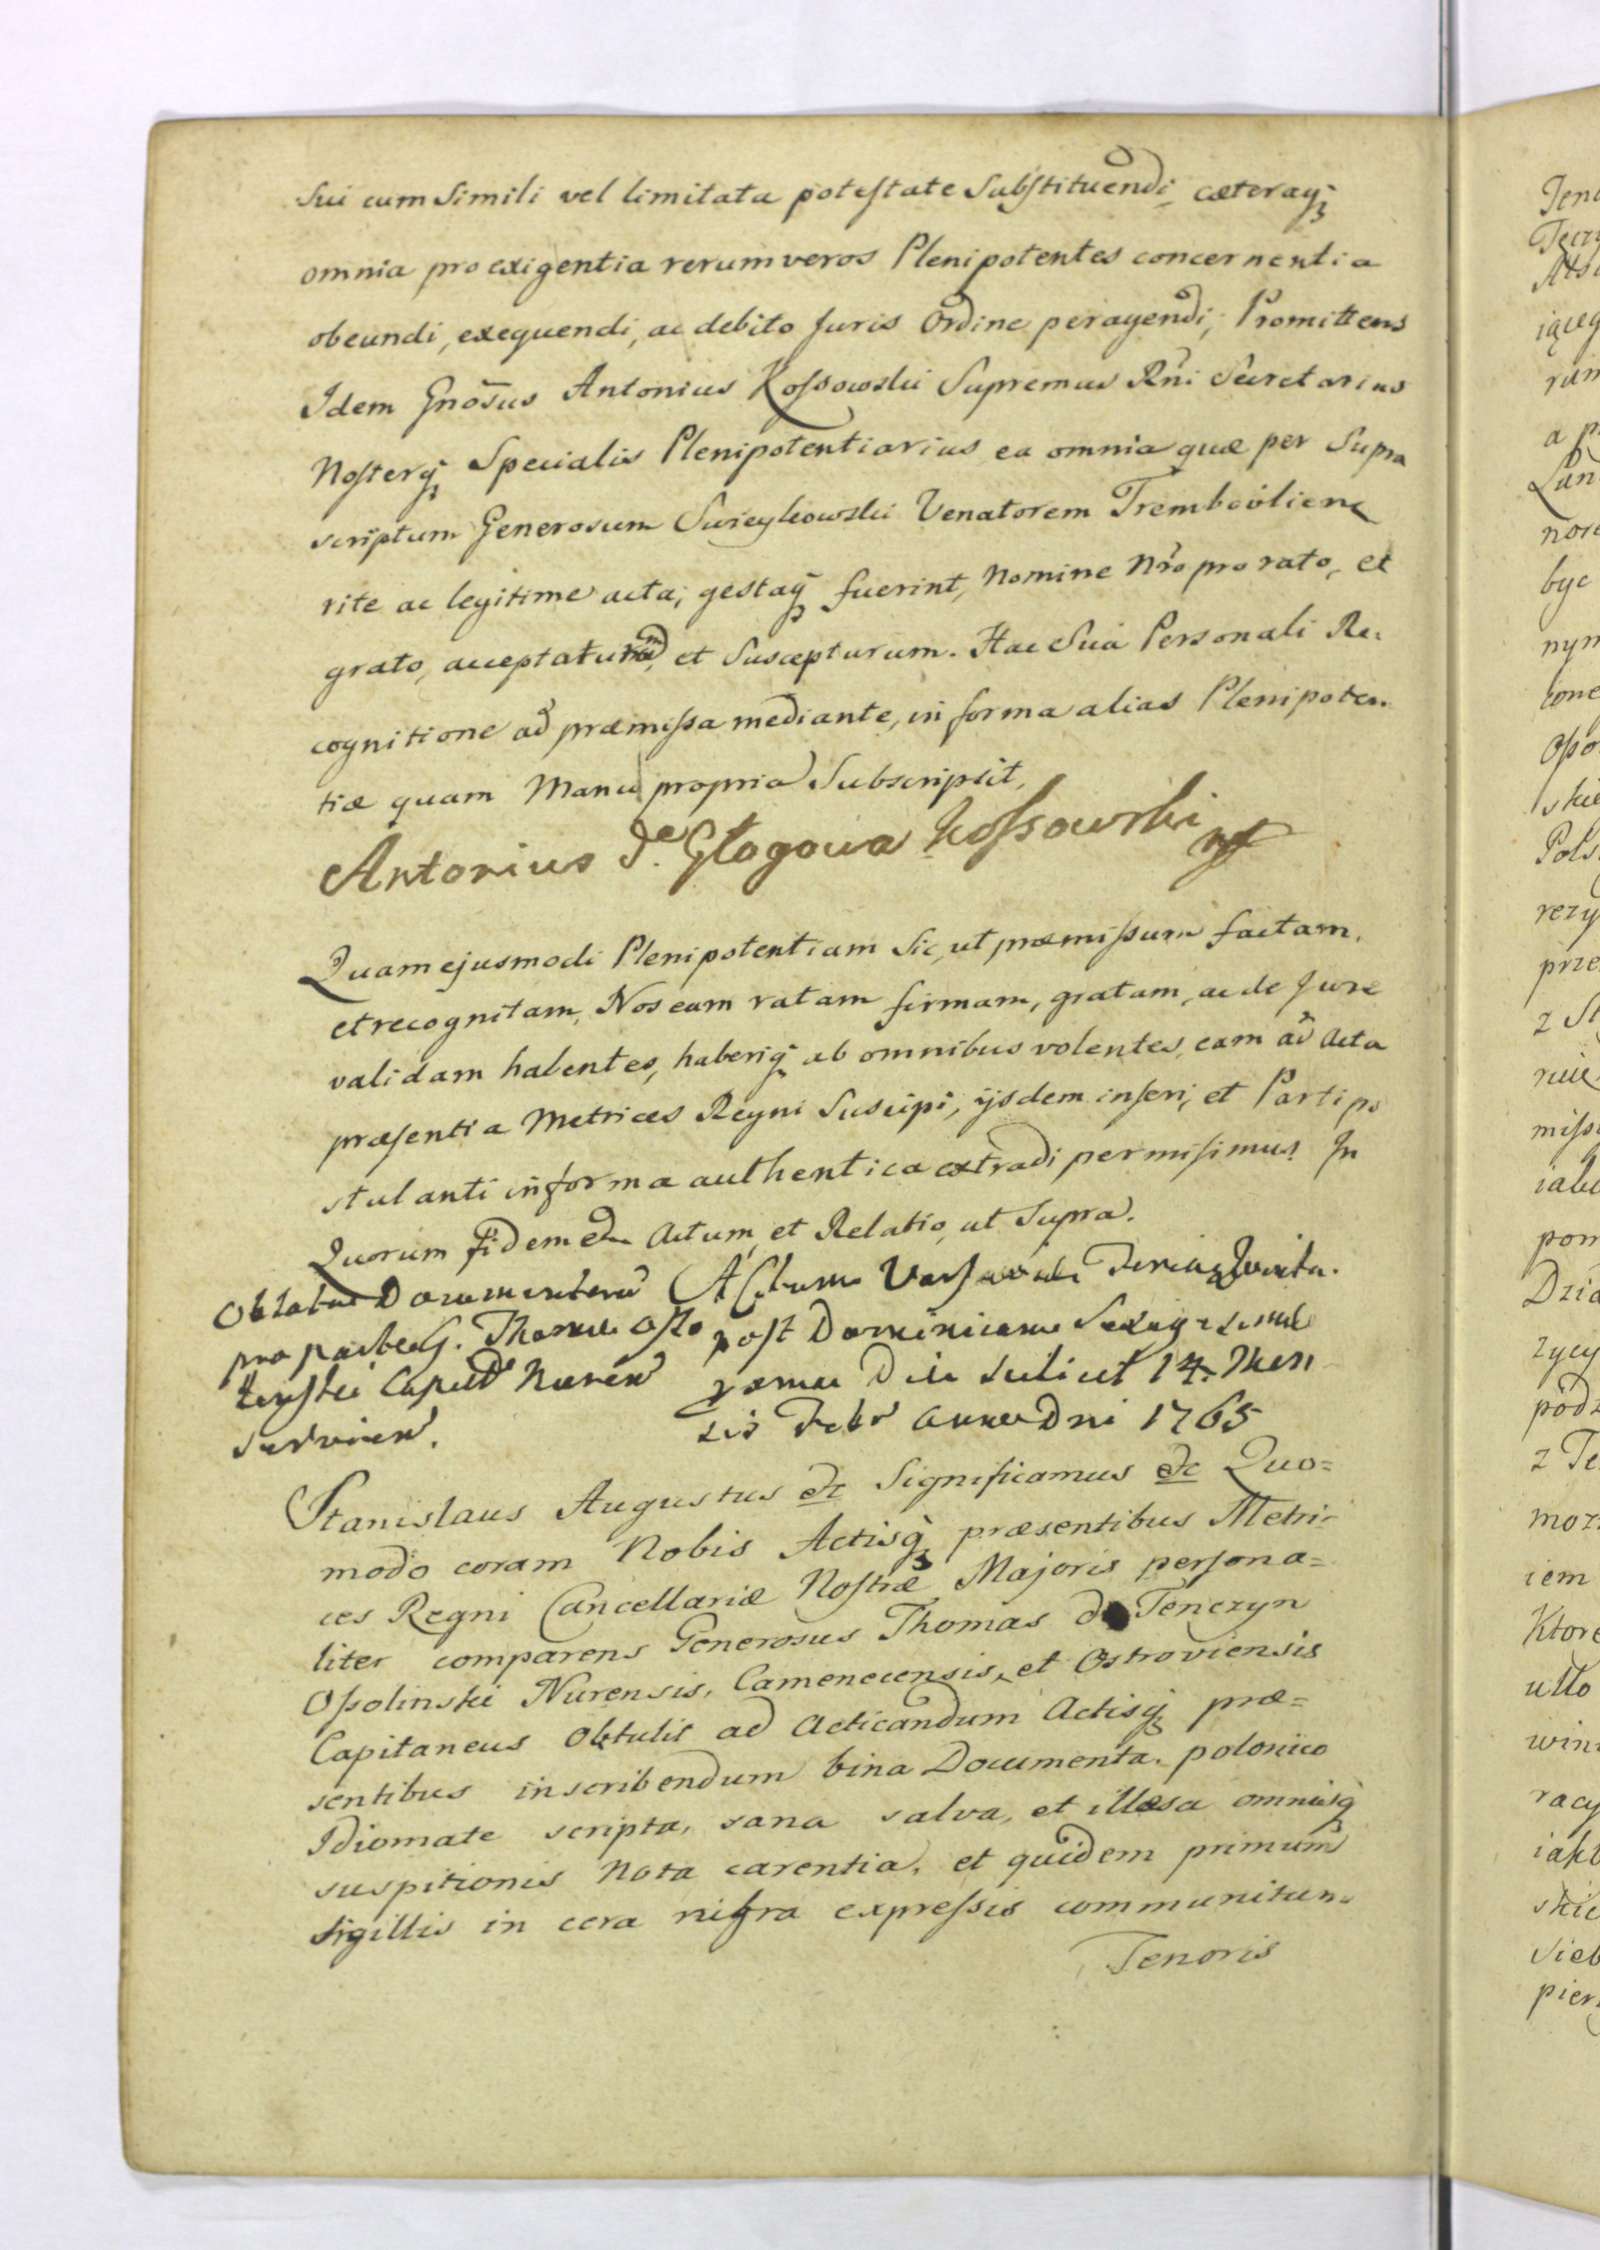 sui cum simili vel limitata potestate Substituendi, cæteraq;
omnia pro exigentia rerum veros Plenipotentes concernentia
obeundi, exequendi, ac debito Juris Ordine peragendi; Promittens
Idem Gnõsus Antonius Kossowski Supremus Rni Secretarius
Nosterq; Specialis Plenipotentiarius ea omnia quæ per Supra
scriptum Generosum Swieykowski Venatorem Trembovlien
rite ac legitime acta, gestaq; fuerint, Nomine Nro pro rato, et
grato, acceptaturum, et Suscepturum. Hac Sua Personali Re:
cognitione ad præmissa mediante, in forma alias Plenipoten-
tiæ quam Manu propria Subscripsit.
Antonius de Głogowa Kossowski mp
Quam ejusmodi Plenipotentiam Sic, ut præmissum factam,
et recognitam, Nos eam ratam firmam, gratam, ac de Jure
validam habentes, haberiq; ab omnibus volentes, eam ad Acta
præsentia Metrices Regni Suscipi, ijsdem inseri, et Parti po
stulanti in forma authentica extradi permisimus. In
Quorum fidem etc Actum, et Relatio, ut Supra.
Oblatae Documentorum
pro parte G. Thomae Osso
linski Capit Nuren
servien.
Actum Varsaviae Feria Quinta
post Dominicam Sexagesimae
proxima Die scilicet 14. Men
sis Febr Anno Dni 1765
Stanislaus Augustus etc Significamus etc Quo=
modo coram Nobis Actisq; præsentibus Metri-
ces Regni Cancellariæ Nostræ Majoris persona=
liter comparens Generosus Thomas de Tenczyn
Ossolinski Nurensis, Camenecensis, et Ostroviensis
Capitaneus Obtulit ad Acticandum Actisq; præ=
sentibus inscribendum bina Documenta, polonico
Idiomate scripta, sana salva, et illæsa omniusq;
suspitionis Nota carentia, et quidem primum
sigillis in cera nigra expressis communitum
Tenoris